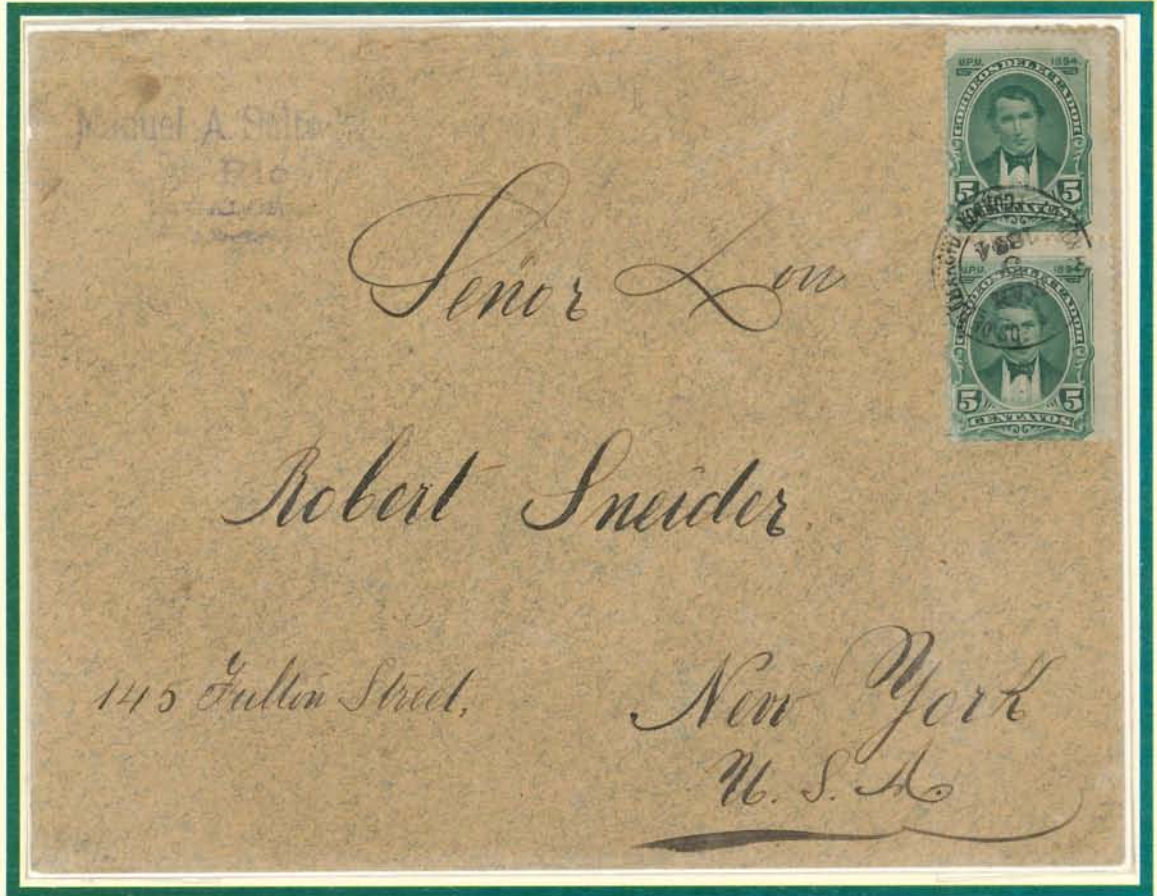 Manuel A.
Señor Don
Robert Sneider.
145 Fulton Street,
New York
U. S. A.
U.P.U. 1894
CORREOS DEL ECUADOR
5 5
CENTAVOS
1894
U.P.U. 1894
CORREOS DEL ECUADOR
5 5
CENTAVOS